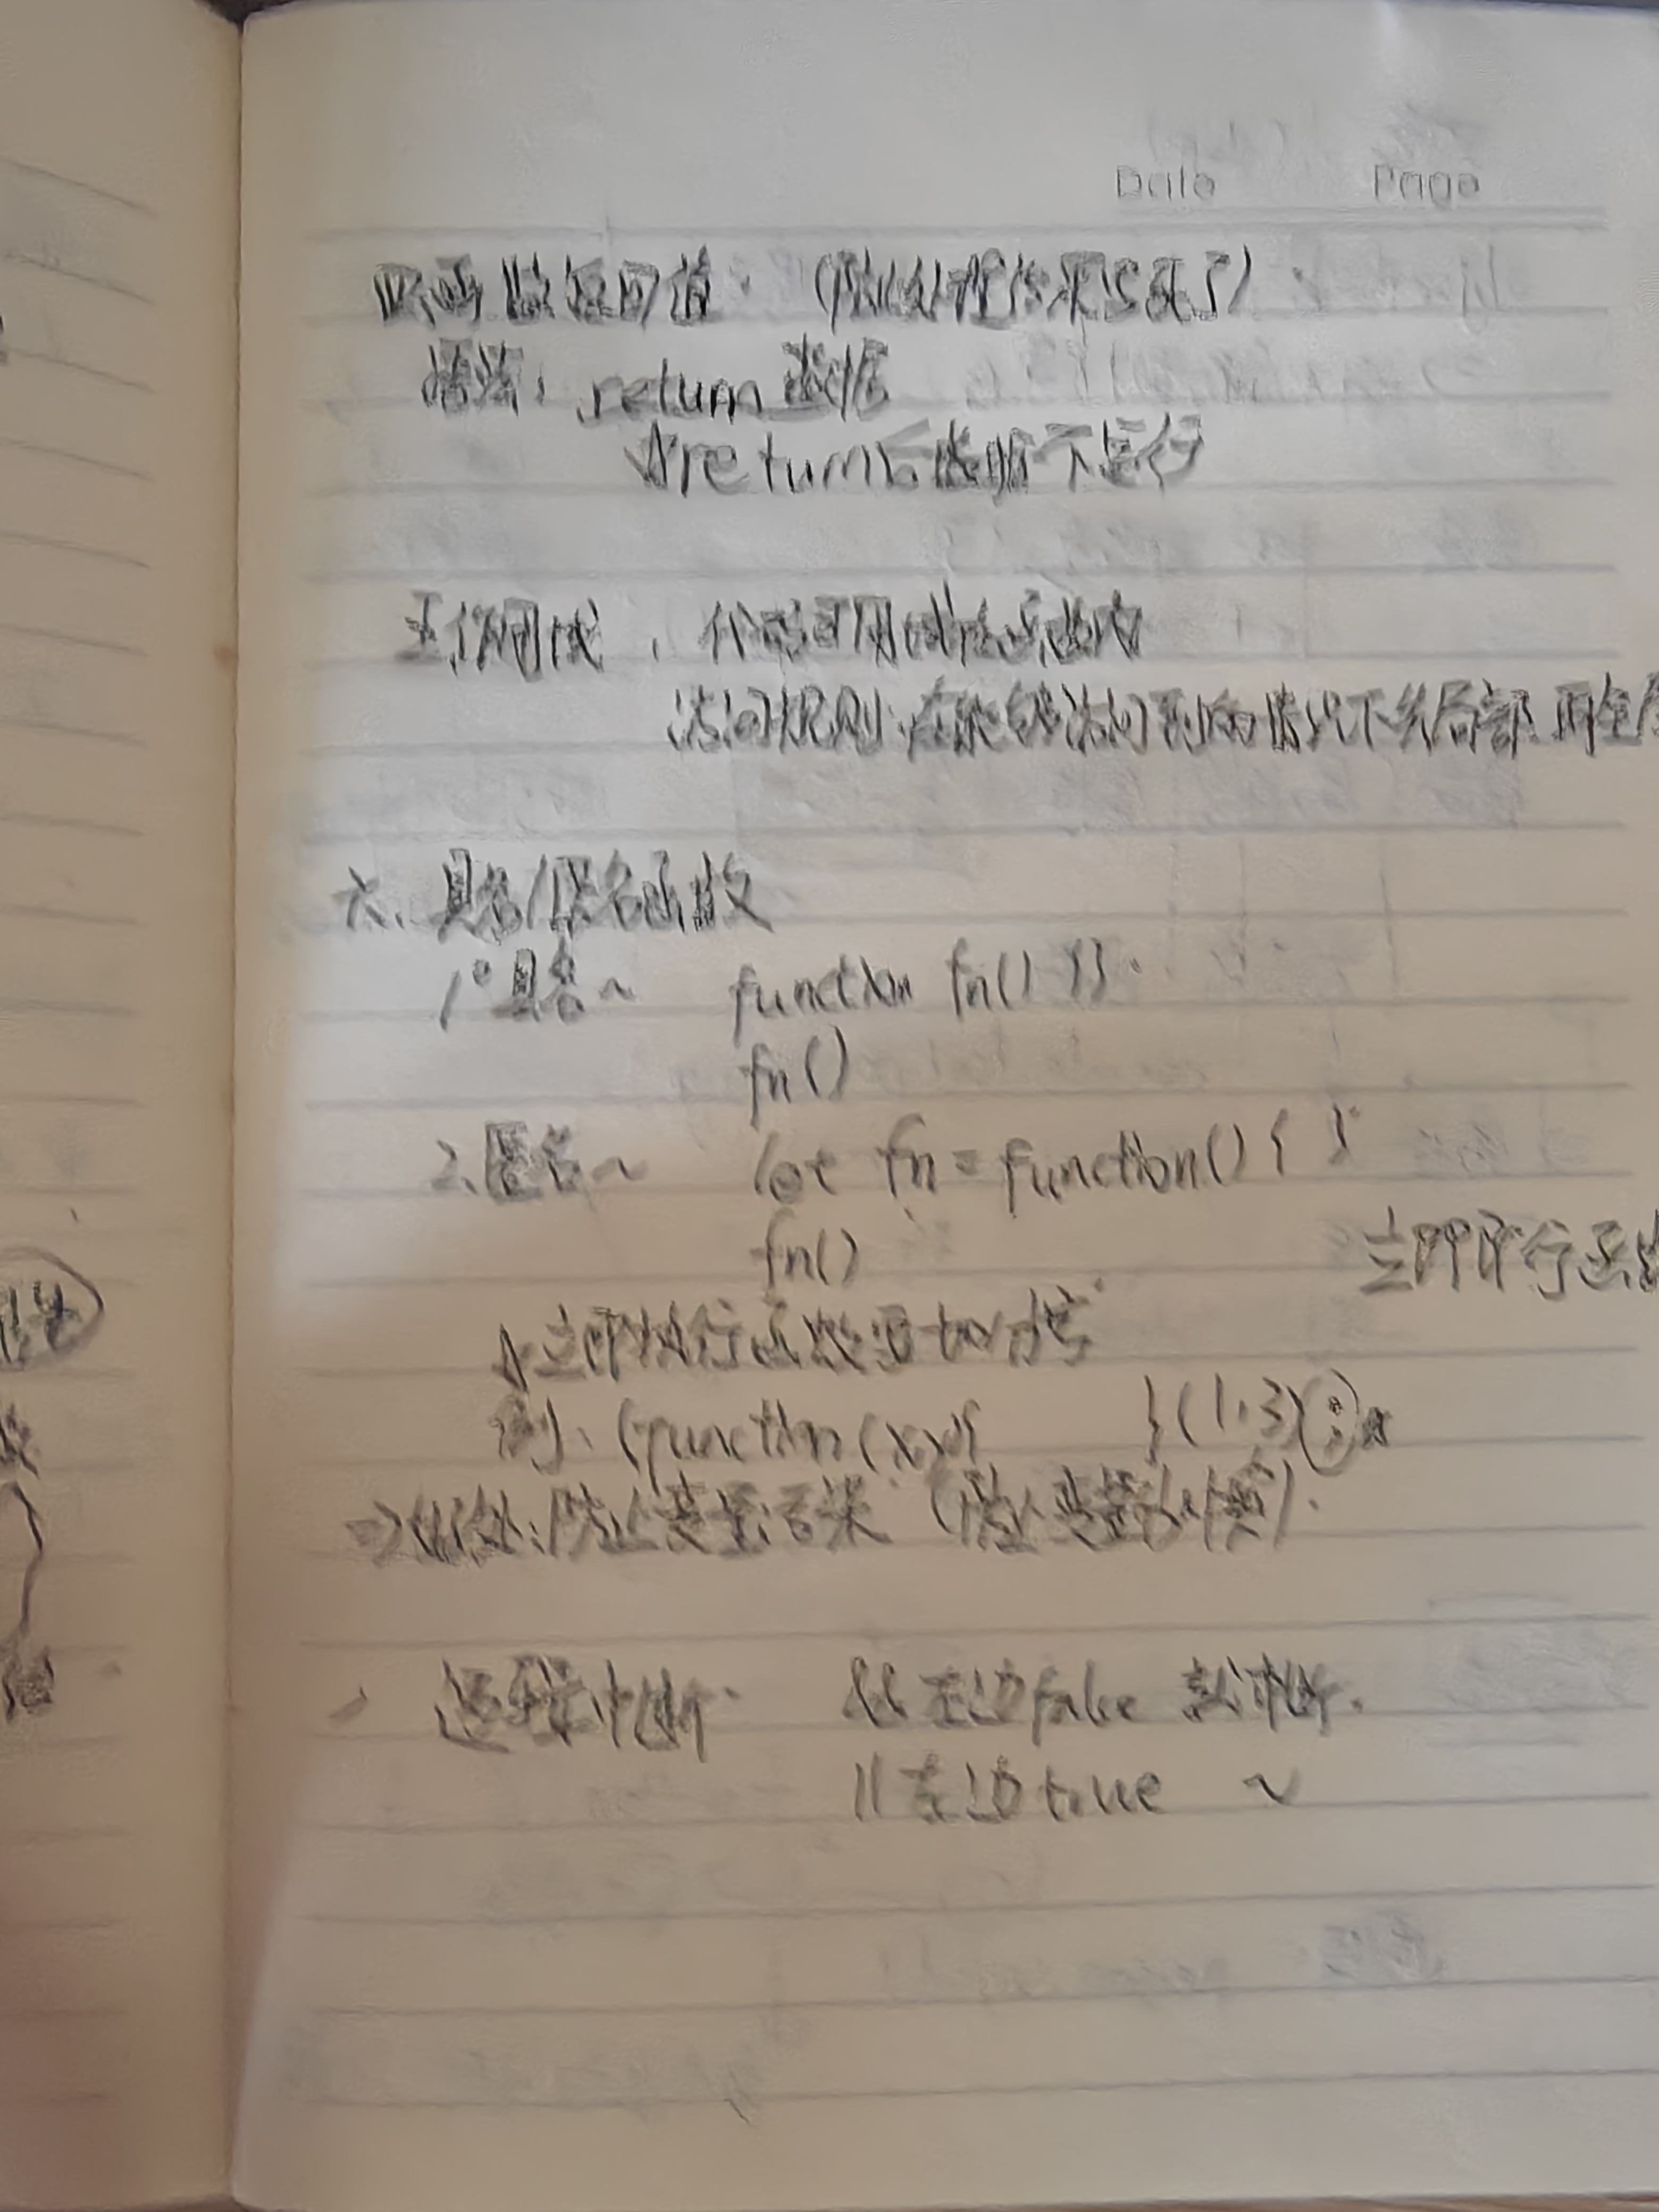 Date Page
四、函数返回值. (
语法: return 数据
☆return后代码不运行
五、作用域:
访问规则:在能够访问到的情况下先局部 再全局
六、具名/匿名函数
1° 具名~ function fn() { }.
fn()
2. 匿名~ let fn = function() { }
fn()
立即执行函数
☆立即执行函数要加分号
例: (function (x,y){ }(1,3));
→好处:防止变量污染 (防止变量
逻辑中断. && 左边false 就中断.
|| 左边true ~